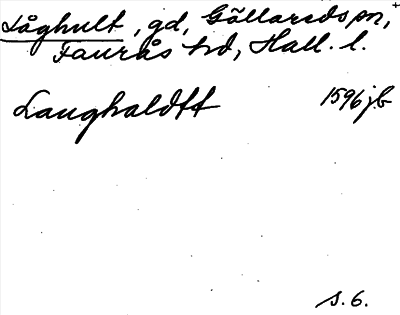 Låghult, gd, Gällareds sn,+
Faurås hd, Hall. l.
Laughaldtt 1596 jb
s. 6.